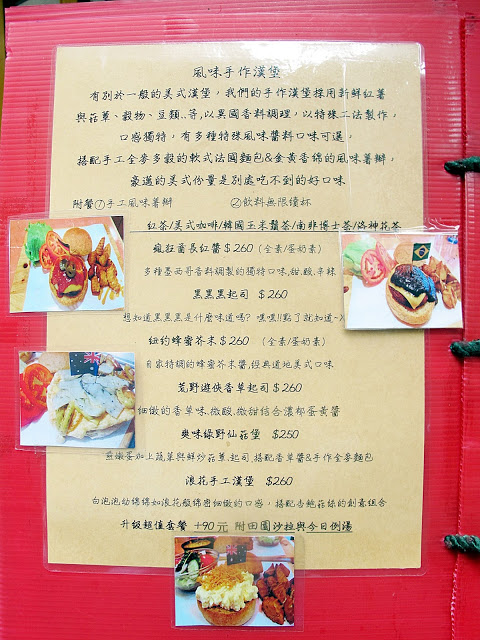 風味手作漢堡
有別於一般的美式漢堡，我們的手作漢堡採用新鮮紅薯
與菇蕈、穀物、豆類..等,以異國香料調理，以特殊工法製作，
口感獨特，有多種特殊風味醬料口味可選，
搭配手工全麥多穀的軟式法國麵包&金黃香綿的風味薯瓣，
豪邁的美式份量是別處吃不到的好口味
附餐①手工風味薯瓣 ②飲料無限續杯
紅茶/美式咖啡/韓國玉米鬚茶/南非博士茶/洛神花茶
瘋狂酋長紅醬 $260 (全素/蛋奶素)
多種墨西哥香料調製的獨特口味,甜.酸.辛辣
黑黑黑起司 $260
想知道黑黑黑是什麼味道嗎? 嘿嘿!!點了就知道~
紐約蜂蜜芥末 $260 (全素/蛋奶素)
自家特調的蜂蜜芥末醬,經典道地美式口味
荒野遊俠香草起司 $260
細緻的香草味,微酸.微甜結合濃郁蛋黃醬
爽味綠野仙菇堡 $250
煎嫩蛋加上蔬菜與鮮炒菇蕈.起司.搭配香草醬&手作全麥麵包
浪花手工漢堡 $260
白泡泡幼綿綿如浪花般綿密細緻的口感，搭配杏鮑菇絲的創意組合
升級超值套餐 +90元 附田園沙拉與今日例湯